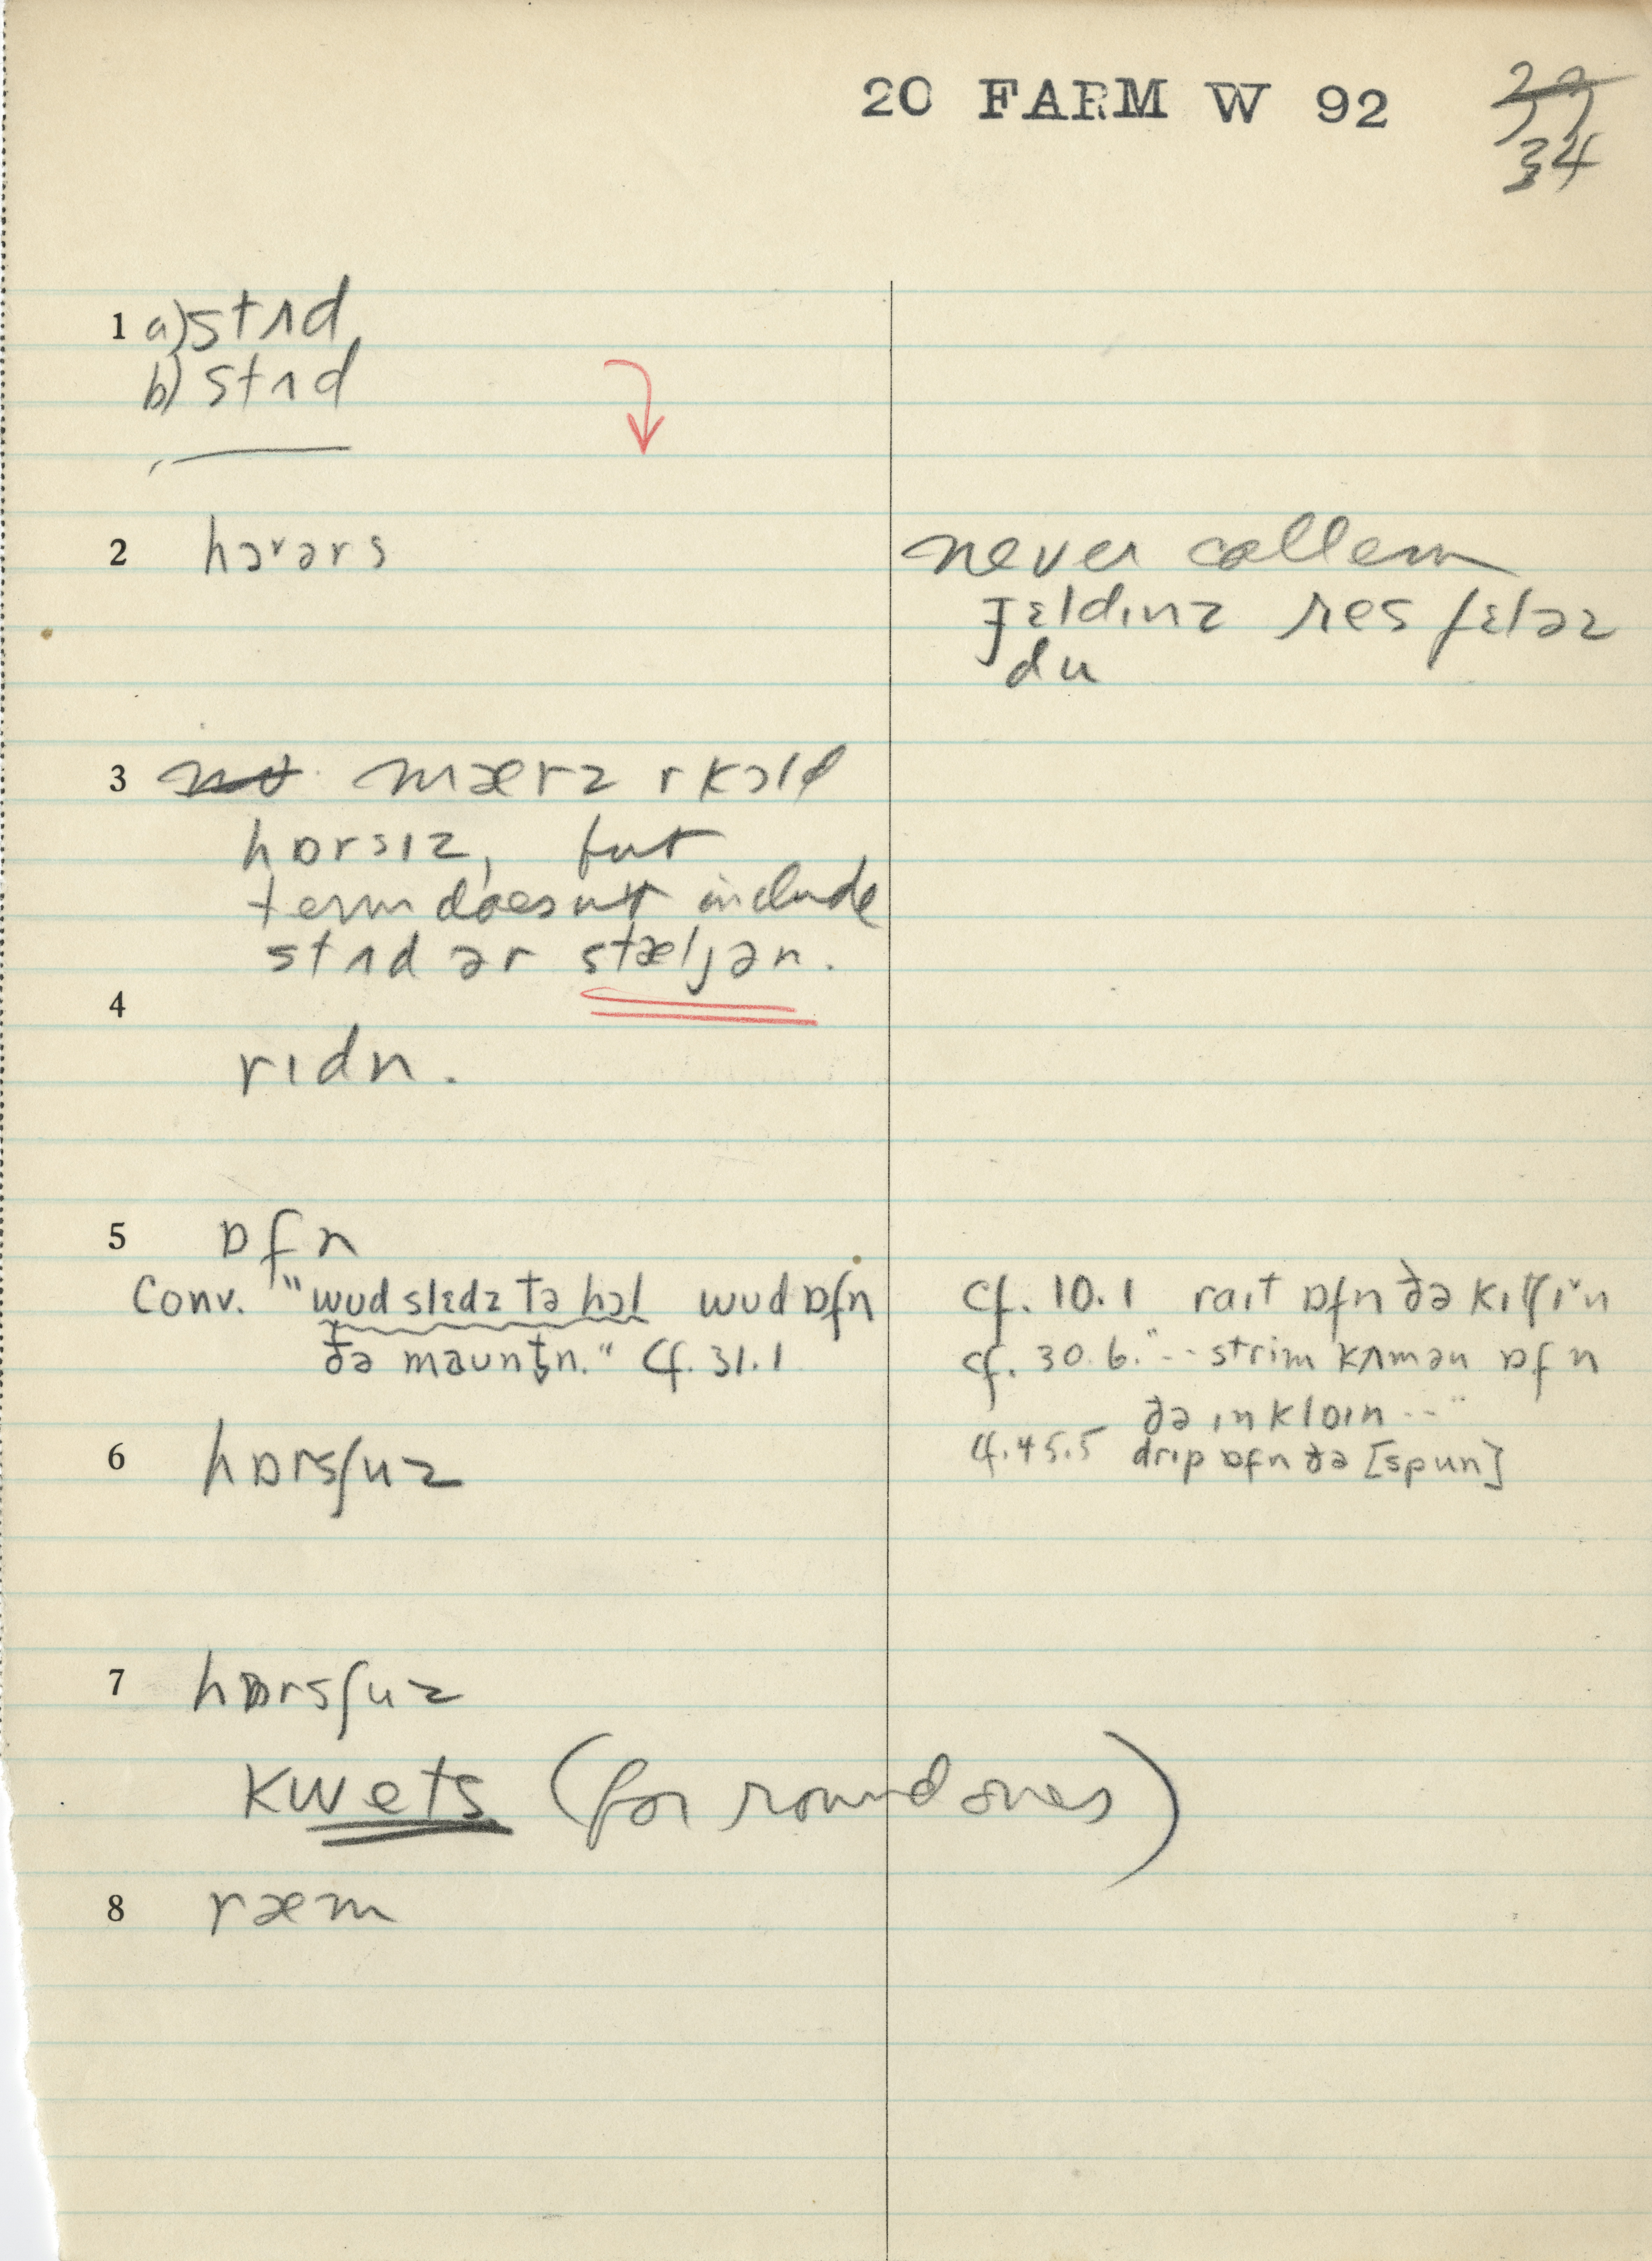 20 FARM W 92
22
34
1 a) stʌd
b) stʌd
2 hɔrərs
never callem
ɟɛldɪnz res fɛləz
du
3 no mærz r kɔld
hɒrsɪz, but
term does not include
stʌd ər stæljən.
4
rɪdn.
5 ɒfn
Conv. "wud slɛdz tə hɔl wud ɒfn
ðə mauntn̩." cf. 31.1
cf. 10.1 raɪt ɒfn ðə kɪtʃɪn
cf. 30.6. "-- strim kʌmən ɒfn
ðə ɪnklɒɪn --"
cf. 45.5 drɪp ɒfn ðə [spun]
6 hɒrsʃuz
7 hɒrsʃuz
kwets (for round ones)
8 ræm